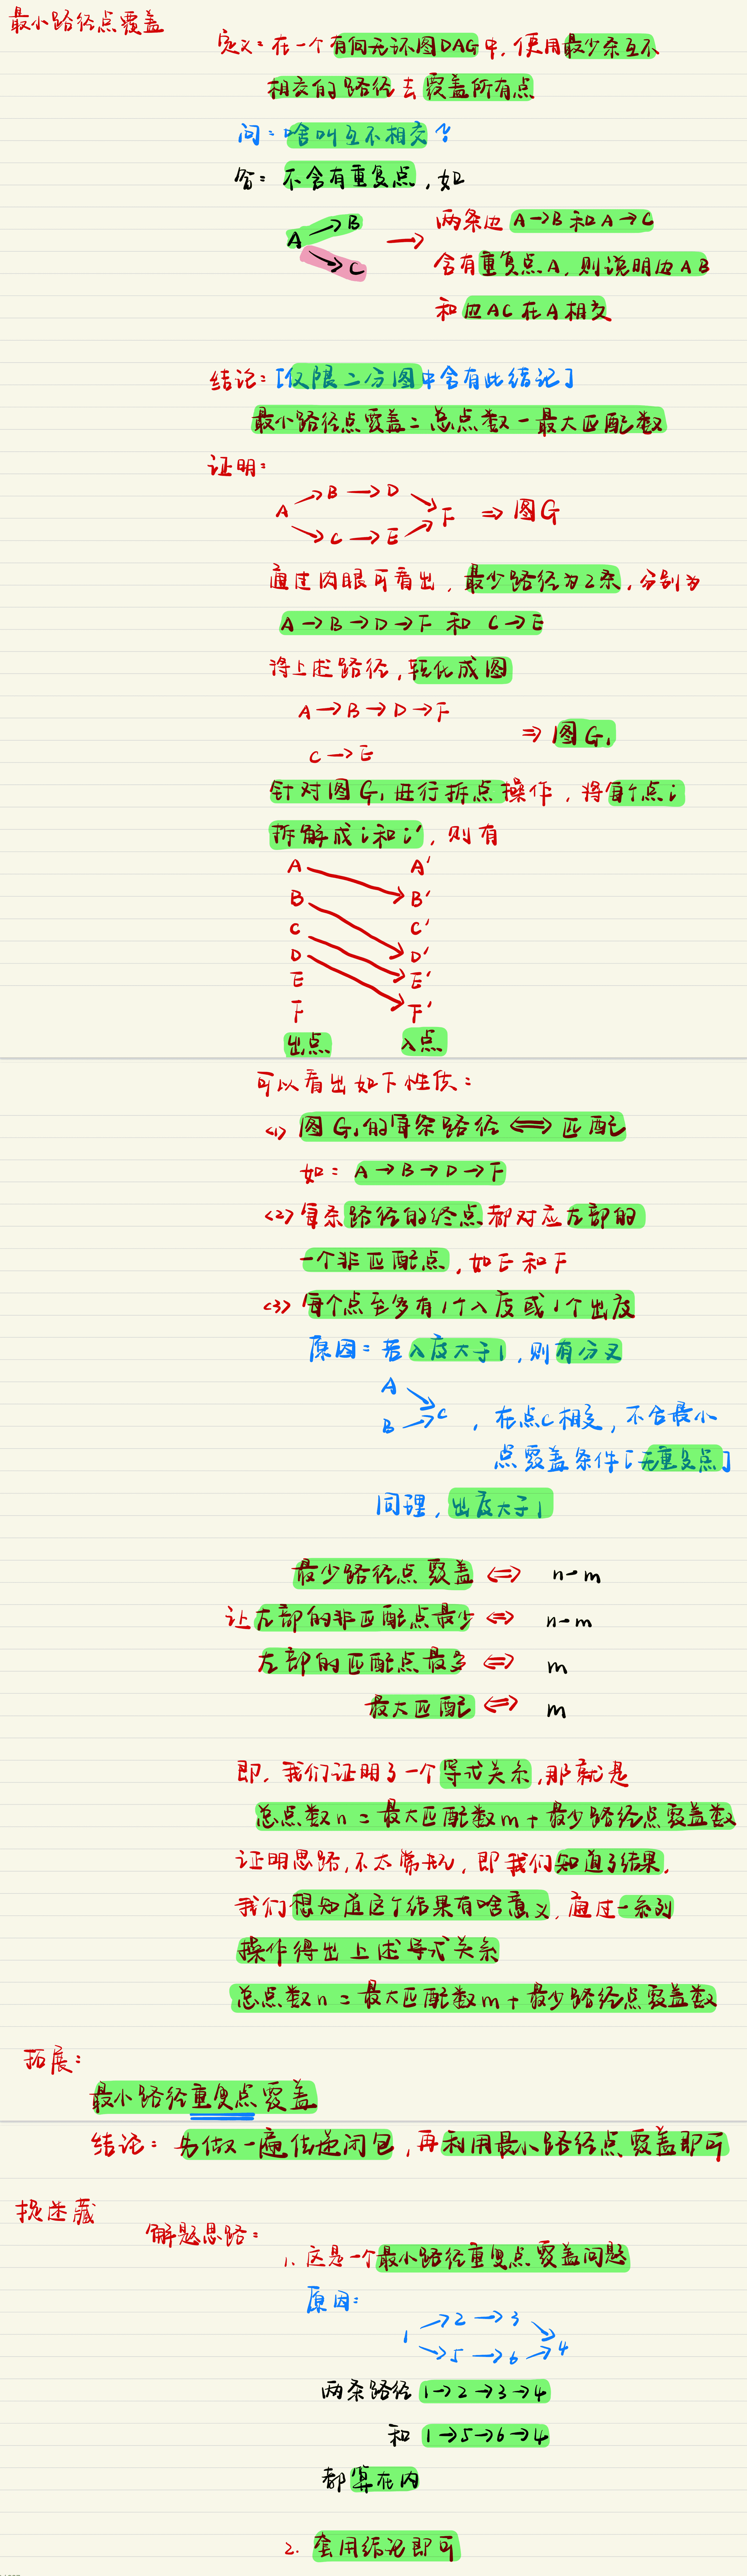 最小路径点覆盖
定义:在一个有向无环图DAG中,使用最少条互不
相交的路径去覆盖所有点
问:啥叫互不相交?
答:不含有重复点,如
A→B
→C
→
两条边 A→B 和 A→C
含有重复点A,则说明边AB
和边AC在A相交
结论:[仅限二分图中含有此结论]
最小路径点覆盖=总点数-最大匹配数
证明:
A→B→D→F
→C→E→
⇒图G
通过肉眼可看出,最少路径为2条,分别为
A→B→D→F 和 C→E
将上述路径,转化成图
A→B→D→F
C→E
⇒图G₁
针对图G₁进行拆点操作,将每个点i
拆解成i和i′,则有
A A′
B B′
C C′
D D′
E E′
F F′
出点 入点
可以看出如下性质:
<1> 图G₁的每条路径⟺匹配
如:A→B→D→F
<2> 每条路径的终点都对应左部的
一个非匹配点,如E和F
<3> 每个点至多有1个入度或1个出度
原因:若入度大于1,则有分叉
A
B→C,在点C相交,不合最小
点覆盖条件[无重复点]
同理,出度大于1
最少路径点覆盖⇔ n-m
让左部的非匹配点最少⇔ n-m
左部的匹配点最多⇔ m
最大匹配⇔ m
即,我们证明了一个等式关系,那就是
总点数n=最大匹配数m+最少路径点覆盖数
证明思路,不太常规,即我们知道了结果,
我们想知道这个结果有啥意义,通过一系列
操作得出上述等式关系
总点数n=最大匹配数m+最少路径点覆盖数
拓展:
最小路径重复点覆盖
结论:先做一遍传递闭包,再利用最小路径点覆盖即可
捉迷藏
解题思路:
1. 这是一个最小路径重复点覆盖问题
原因:
1→2→3→4
→5→6→
两条路径 1→2→3→4
和 1→5→6→4
都算在内
2. 套用结论即可